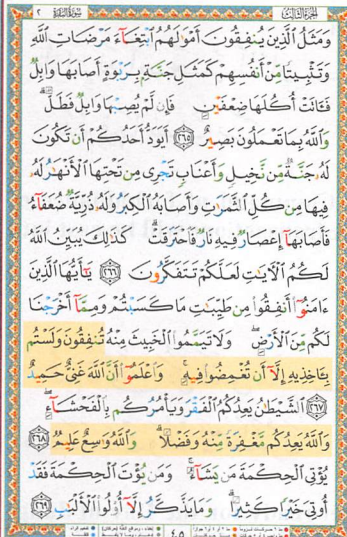 الجزء الثالث
سورة البقرة ٢
وَمَثَلُ الَّذِينَ يُنفِقُونَ أَمْوَٰلَهُمُ ابْتِغَآءَ مَرْضَاتِ اللَّهِ
وَتَثْبِيتًا مِّنْ أَنفُسِهِمْ كَمَثَلِ جَنَّةٍۭ بِرَبْوَةٍ أَصَابَهَا وَابِلٌ
فَـَٔاتَتْ أُكُلَهَا ضِعْفَيْنِ فَإِن لَّمْ يُصِبْهَا وَابِلٌ فَطَلٌّ ۗ
وَاللَّهُ بِمَا تَعْمَلُونَ بَصِيرٌ ٢٦٥ أَيَوَدُّ أَحَدُكُمْ أَن تَكُونَ
لَهُۥ جَنَّةٌ مِّن نَّخِيلٍ وَأَعْنَابٍ تَجْرِى مِن تَحْتِهَا الْأَنْهَٰرُ لَهُۥ
فِيهَا مِن كُلِّ الثَّمَرَٰتِ وَأَصَابَهُ الْكِبَرُ وَلَهُۥ ذُرِّيَّةٌ ضُعَفَآءُ
فَأَصَابَهَآ إِعْصَارٌ فِيهِ نَارٌ فَاحْتَرَقَتْ ۗ كَذَٰلِكَ يُبَيِّنُ اللَّهُ
لَكُمُ الْآيَٰتِ لَعَلَّكُمْ تَتَفَكَّرُونَ ٢٦٦ يَٰٓأَيُّهَا الَّذِينَ
ءَامَنُوٓا أَنفِقُوا مِن طَيِّبَٰتِ مَا كَسَبْتُمْ وَمِمَّآ أَخْرَجْنَا
لَكُم مِّنَ الْأَرْضِ ۖ وَلَا تَيَمَّمُوا الْخَبِيثَ مِنْهُ تُنفِقُونَ وَلَسْتُم
بِـَٔاخِذِيهِ إِلَّآ أَن تُغْمِضُوا فِيهِ ۚ وَاعْلَمُوٓا أَنَّ اللَّهَ غَنِىٌّ حَمِيدٌ
٢٦٧ الشَّيْطَٰنُ يَعِدُكُمُ الْفَقْرَ وَيَأْمُرُكُم بِالْفَحْشَآءِ ۖ
وَاللَّهُ يَعِدُكُم مَّغْفِرَةً مِّنْهُ وَفَضْلًا ۗ وَاللَّهُ وَٰسِعٌ عَلِيمٌ ٢٦٨
يُؤْتِى الْحِكْمَةَ مَن يَشَآءُ ۚ وَمَن يُؤْتَ الْحِكْمَةَ فَقَدْ
أُوتِىَ خَيْرًا كَثِيرًا ۗ وَمَا يَذَّكَّرُ إِلَّآ أُولُوا الْأَلْبَٰبِ ٢٦٩
٤٥